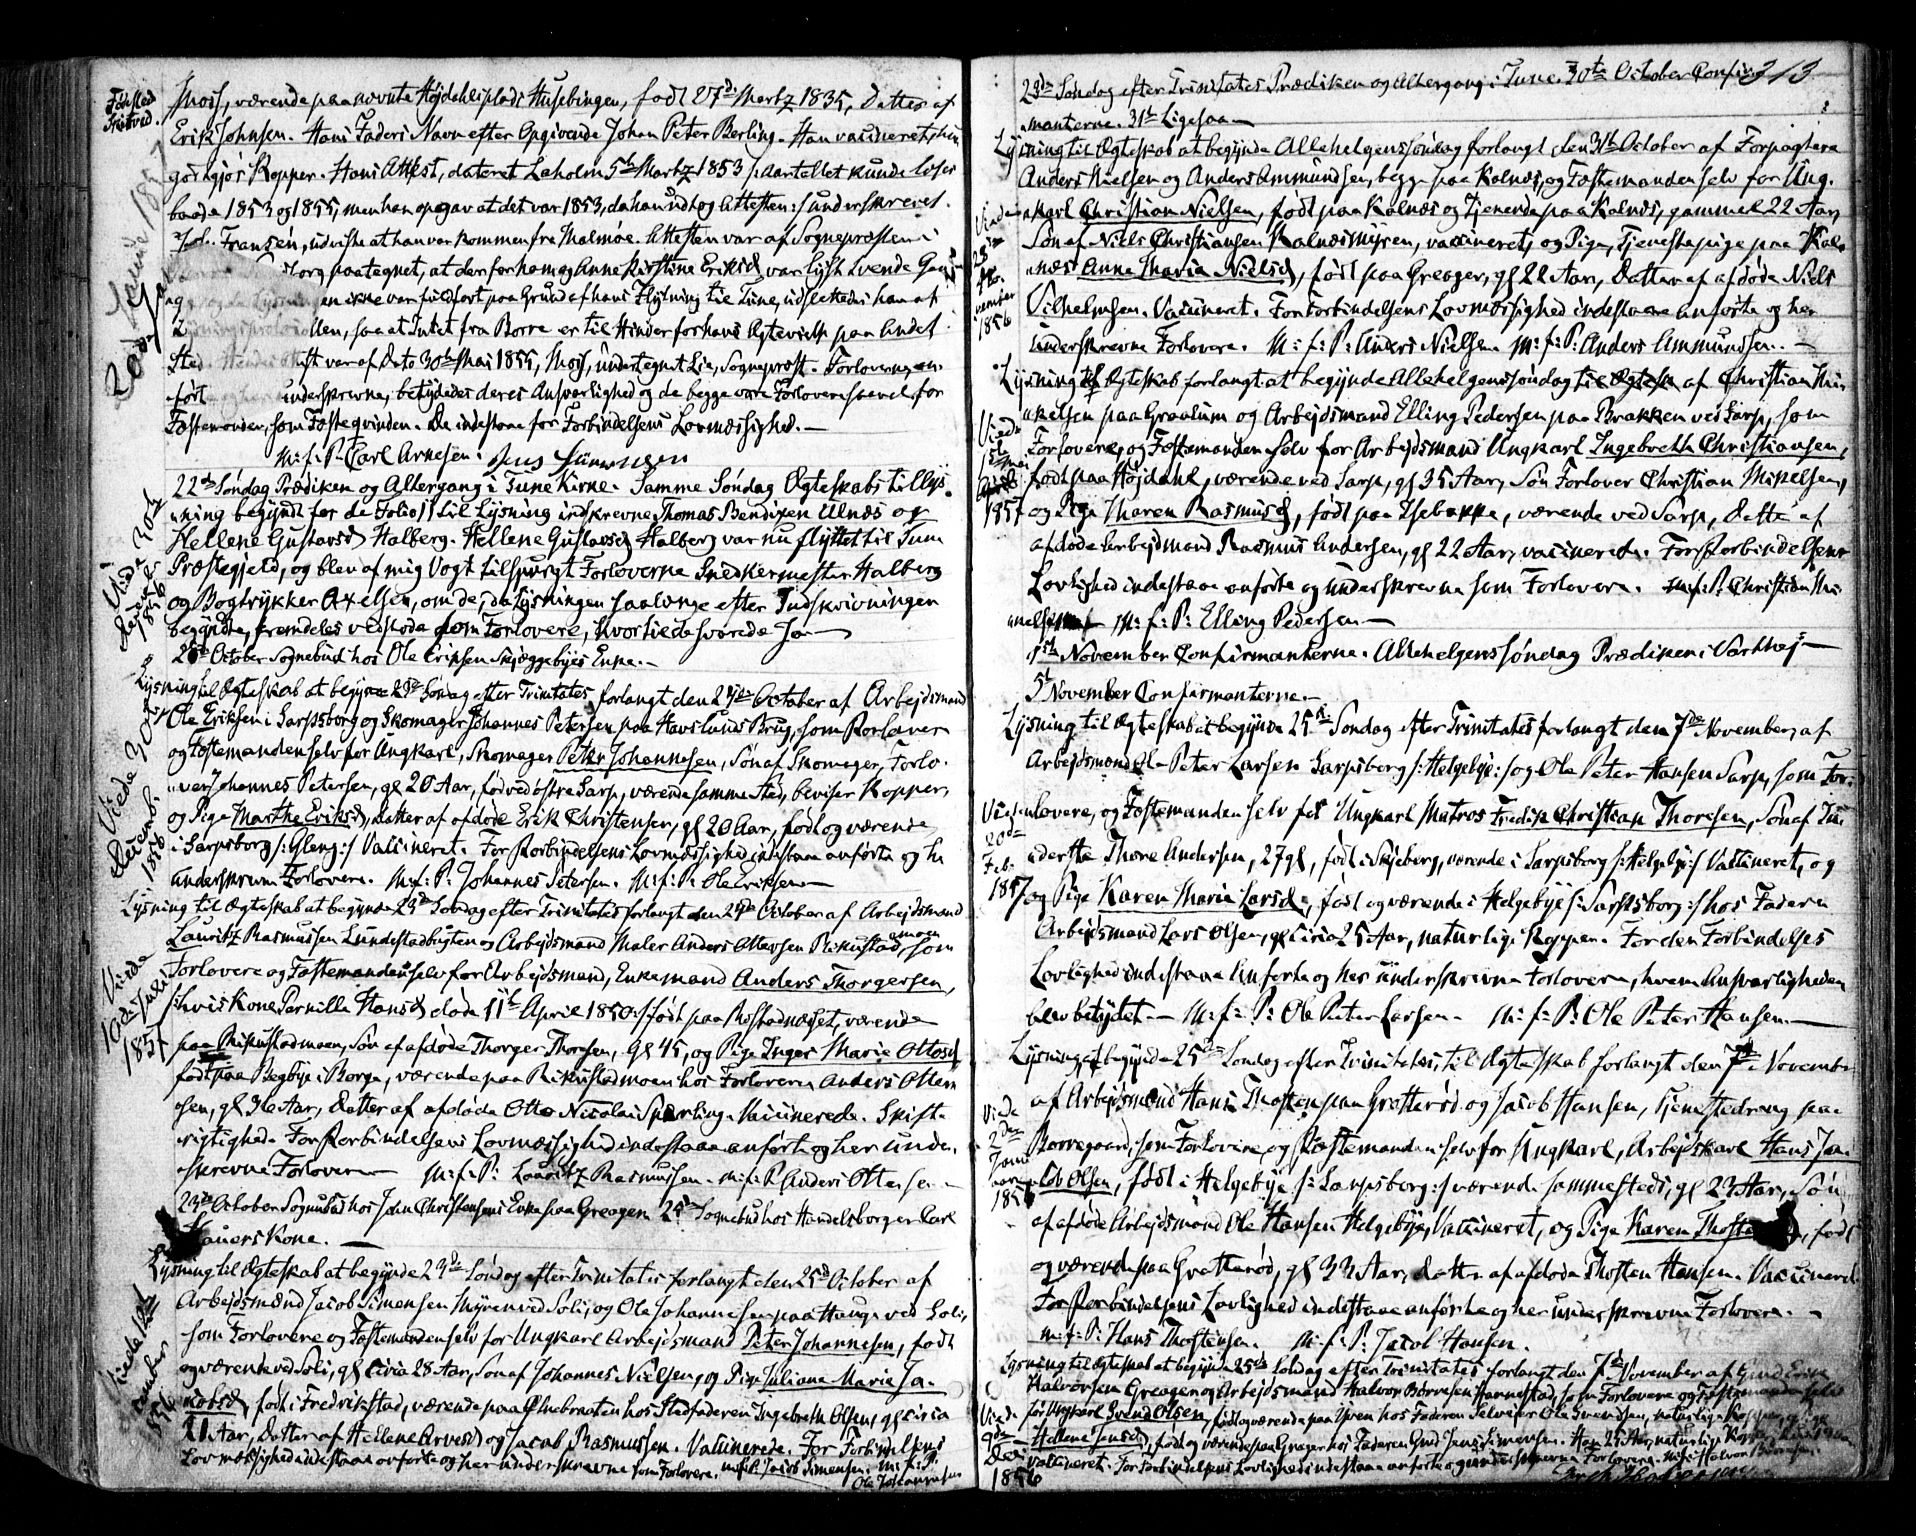 Moss, værende paa nævnte Højdahlsplads Husebingen, født 27de Martz 1835, Datter af
Erik Johnsen. Hans Faders Navn efter Opgivende Johan Peter Berling. Han vaccineret, hun
godtgjør Kopper. Hans Attest, dateret Laholm 5te Martz 1853 /: Aartallet kunde læses
baade 1853 og 1855, men han opgav at det var 1853, da han udtog Attesten :/ underskrevet
Joh. Fransén, udviste at han var kommen fra Malmøe. Attesten var af Sognepræsten i
paategnet, at der for ham og Anne Kirstine Eriksd. var lyst tvende Gange
en ikke var fuldført paa Grund af hans Flytning til Tune, udslettedes han af
Lysningsprotocollen, saa at Intet fra Borre er til Hinder for hans Ægtevielse paa andet
Sted. Hendes Attest var af Dato 30te Mai 1855, Moss, undertegnet Lie, Sogneprost. Forloverne, an-
ført og her underskrevne, betydedes deres Ansvarlighed og de begge vare Forlovere saavel for
Fæstemanden, som Fæsteqvinden. De indestaae for Forbindelsens Lovmæssighed. —
M: f: P: Carl Arnesen. Jens Simensen
22de Søndag Prædiken og Altergang i Tune Kirke. Samme Søndag Ægteskabs tillys-
ning begyndt for de Folio til Lysning indskrevne Thomas Bendixen Ulnæs og
Hellene Gustavsd. Halberg. Hellene Gustavsd. Halberg var nu flyttet til Tune
Præstegjeld, og blev af mig Vogt tilspurgt Forloverne Snedkermester Halberg
og Bogtrykker Axelsen, om de, da Lysningen saalænge efter Indskrivningen
begyndte, fremdeles vedstode som Forlovere, hvortil de svarede Ja —
October Sognebud hos Ole Eriksen Skjæggebyes Enke. —
Lysning til Ægteskab at begynde 23de Søndag efter Trinitatis forlangt den October af Arbejdsmand
Ole Eriksen i Sarpsborg og Skomager Johannes Petersen paa Hafslunds Brug, som Forlovere
og Fæstemanden selv for Ungkarl, Skomager Peter Johannesen, Søn af Skomager, Forlo-
ver Johannes Petersen, gl 20 Aar, født ved østre Sarp, værende samme Sted, beviser Kopper,
og Pige Marthe Eriksd., Datter af afdøde Erik Christensen, gl 20 Aar, født og værende
i Sarpsborg /: Gleng :/ Vaccineret. For Forbindelsens Lovmæssighed indestaae anførte og her
underskrevne Forlovere. M: f: P: Johannes Petersen. M: f: P: Ole Eriksen —
Lysning til Ægteskab at begynde 23de Søndag efter Trinitatis forlangt den October af Arbejdsmand
Lauritz Rasmussen Lundestadbugten og Arbejdsmand Maler Anders Ottersen Rikustadmoen, som
Forlovere og Fæstemanden selv for Arbejdsmand, Enkemand Anders Thorgersen,
/: hvis Kone Pernille Hansd. døde 11te April 1850 :/ født paa Rostadnæsset, værende
paa Rikustadmoen, Søn af afdøde Thorger Thoresen, gl 45, og Pige Inger Marie Ottosd.
født paa Begbye i Borge, værende paa Rikustadmoen hos Forloveren Anders Otter-
sen, gl 36 Aar, Datter af afdøde Otto Nicolai Sperling. Vaccinerede. Skifte-
rigtighed. For Forbindelsens Lovmæssighed indestaae anførte og her under-
skrevne Forlovere — M: f: P: Lauritz Rasmussen. M: f: P. Anders Ottersen —
23de October Sognebud hos John Christensens Enke paa Greager. 25de Sognebud hos Handelsborger Carl
Hauers Kone. —
Lysning til Ægteskab at begynde 23de Søndag efter Trinitatis forlangt den 25de October af
Arbejdsmand Jacob Simensen Myren ved Soli, og Ole Johannesen paa Hauge ved Soli,
som Forlovere og Fæstemanden selv for Ungkarl Arbejdsmand Peter Johannesen, født
og værende ved Soli, gl circa 28 Aar, Søn af Johannes Nielsen, og Pige Juliane Marie Ja-
kobsd., født i Fredrikstad, værende paa Ølnebraaten hos Stedfaderen Ingebreth Olsen, gl circa
21 Aar, Datter af Hellene Arvesd. og Jacob Rasmussen. Vaccinerede. For Forbindelsens
Lovmæssighed indestaae anførte og her underskrevne som Forlovere. M: f: P. Jacob Simensen. M: f: P:
Ole Johannesen
Viede 30te
1856
Viede 30te
1856
Viede
10de Juli
1857
1856
213
23de Søndag efter Trinitatis Prædiken og Altergang i Tune. 30te October Confir-
manterne. 31te Ligesaa —
Lysning til Ægteskab at begynde Allehelgenssøndag forlangt den 31te October af Forpagtere
Anders Nielsen og Anders Ammundsen, begge paa Kalnæs, og Fæstemanden selv for Ung-
karl Christian Nielsen, født paa Kalnæs og Tjenende paa Kalnæs, gammel 22 Aar,
Søn af Niels Christiansen Kalnæsmyren, vaccineret, og Pige, Tjenestepige paa Kal-
næs Anne Maria Nielsd., født paa Greager, gl 22 Aar, Datter af afdøde Niels
Vilhelmsen. Vaccineret. For Forbindelsens Lovmæssighed indestaae anførte og her
underskrevne Forlovere. M: f: P: Anders Nielsen M: f: P: Anders Ammundsen. —
Lysning til Ægteskab forlangt at begynde Allehelgenssøndag til Ægtesk af Christian Mi-
kelsen paa Greaaker og Arbejdsmand Elling Pedersen paa Brakken ved Sarp, som
Forlovere, og Fæstemanden selv for Arbejdsmand Ungkarl Ingebreth Christiansen,
født paa Højdahl, værende ved Sarp, gl 35 Aar, Søn Forlover Christian Mikelsen,
og Pige Maren Rasmusd., født paa Isebakke, værende ved Sarp, Datter af
afdøde Arbejdsmand Rasmus Andersen, gl 22 Aar, vaccinerede. For Forbindelsens
Lovlighed indestaae anførte og underskrevne som Forlovere. M: f: P: Christian Mi-
kelsen M: f: P: Elling Pedersen —
1ste November Confirmanterne. Allehelgenssøndag Prædiken i Varteig —
5te November Confirmanterne. —
Lysning til Ægteskab at begynde 25de Søndag efter Trinitatis forlangt den 7de November, af
Arbejdsmand Ole Peter Larsen Sarpsborg /: Helgebye :/ og Ole Peter Hansen Sarp, som For-
lovere, og Fæstemanden selv for Ungkarl Matros Fredrik Christian Thoresen, Søn af
Thore Andersen, 27 gl, født i Skjeberg, værende i Sarpsborg /: Helgebye :/ Vaccineret, og
og Pige Karen Maria Larsd., født og værende i Helgebye /: Sarpsborg :/ hos Faderen
Arbejdsmand Lars Olsen, gl circa 25 Aar, naturlige Kopper. For den Forbindelses
Lovlighed indestaae anførte og her underskrevne Forlovere, hvem Ansvarligheden
blev betydet. — M: f: P: Ole Peter Larsen. M: f: P: Ole Peter Hansen. —
Lysning at begynde 25de Søndag efter Trinitatis, til Ægteskab forlangt den 7de November
af Arbejdsmand Hans Thostensen Grøtterød og Jacob Hansen, Tjenestedreng paa
Borregaard, som Forlovere og Fæstemanden selv for Ungkarl, Arbejdskarl Hans Ja-
cob Olsen, født i Helgebye /: Sarpsborg :/ værende sammesteds, gl 23 Aar, Søn
af afdøde Arbejdsmand Ole Hansen Helgebye, Vaccineret, og Pige Karen Thosten, født
og værende paa Grøtterød, gl 33 Aar, Datter af afdøde Thosten Hansen. Vaccineret.
For Forbindelsens Lovlighed indestaae anførte og her underskrevne Forlovere. —
M: f: P: Hans Thostensen. M: f: P: Jacob Hansen.
Lysning til Ægteskab at begynde 25de Søndag efter Trinitatis forlangt den 7de November af
Halvorsen Greager og Arbejdsmand Halvor Børresen Hannestad, som Forlovere og Fæstemanden selv
for Ungkarl Svend Olsen, født og værende paa Yven hos Faderen Selveier Ole Svendsen, naturlige Kopper, og Pige
Hellene Jensd., født og værende paa Greager hos Faderen Jens Simensen. 25 Aar, naturlige Kopper,
vaccineret. For Forbindelsens Lovlighed indestaae anførte og underskrevne Forlovere. M: f: P: Halvor Børresen.
Viede
November
1856
Viede
1ste Mai
1857
Viede
20de
Feb.
1857
Viede
2den
Januar
Viede
9de
Dec.
1856